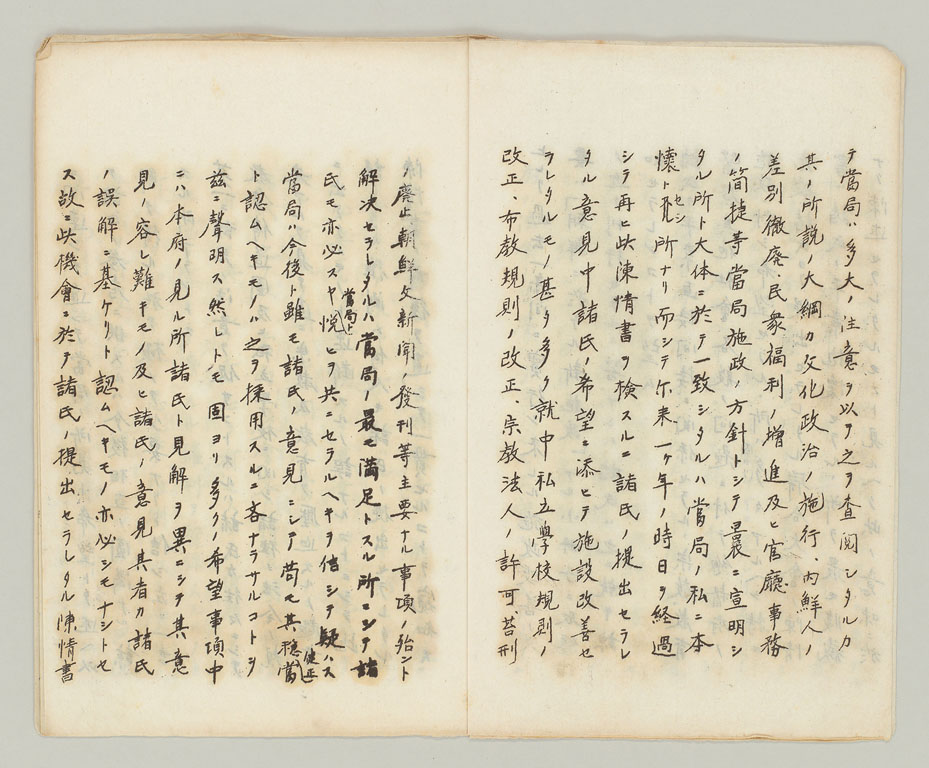 テ當局ハ多大ノ注意ヲ以テ之ヲ査閲シタルカ
其ノ所説ノ大綱カ文化政治ノ施行、内鮮人ノ
差別徹廃、民衆福利ノ増進及ヒ官廳事務
ノ簡捷等當局施政ノ方針トシテ曩ニ宣明シ
タル所ト大体ニ於テ一致シタルハ當局ノ私ニ本
懐トセシ所ナリ而シテ尓来一ヶ年ノ時日ヲ経過
シテ再ヒ此陳情書ヲ檢スルニ諸氏ノ提出セラレ
タル意見中諸氏ノ希望ニ添ヒテ施設改善セ
ラレタルモノ甚タ多ク就中私立學校規則ノ
改正、布教規則ノ改正、宗教法人ノ許可苔刑
ノ廃止朝鮮文新聞ノ發刊等主要ナル事項ノ殆ント
解決セラレタルハ當局ノ最モ満足トスル所ニシテ諸
氏モ亦必スヤ當局ト悦ヒヲ共ニセラルヘキヲ信シテ疑ハス
當局ハ今後ト雖モ諸氏ノ意見ニシテ苟モ其穏當健正
ト認ムヘキモノハ之ヲ採用スルニ吝ナラサルコトヲ
茲ニ聲明ス然レトモ固ヨリ多クノ希望事項中
ニハ本府ノ見ル所諸氏ト見解ヲ異ニシテ其意
見ノ容レ難キモノ及ヒ諸氏ノ意見其者カ諸氏
ノ誤解ニ基ケリト認ムヘキモノ亦必シモナシトセ
ス故ニ此機會ニ於テ諸氏ノ提出セラレタル陳情書